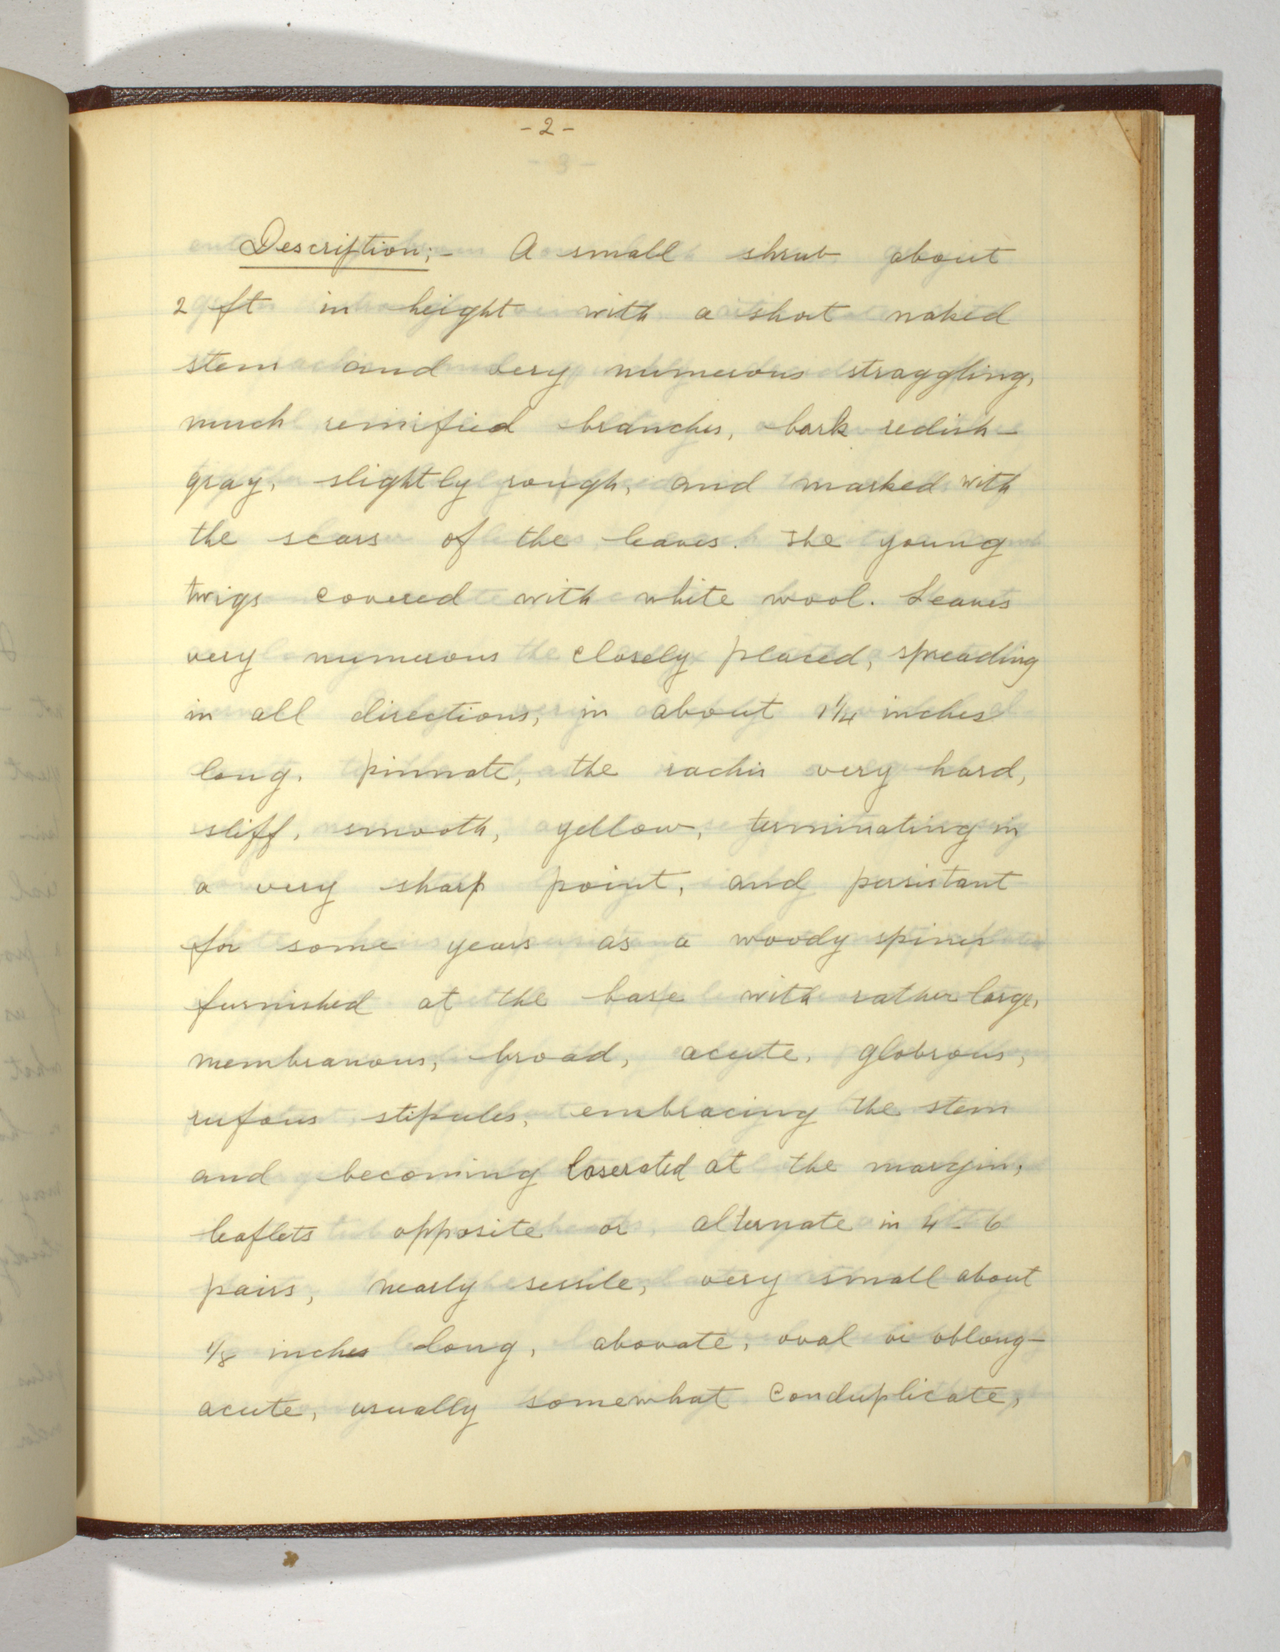 -2-
Description;- A small shrub about
2 ft in height with a short naked
stem and very numerous straggling,
much remified branches, bark redish-
gray, slightly rough, and marked with
the scars of the leaves. The young
twigs covered with white wool. Leaves
very numerous closely placed, spreading
in all directions, in about 1 1/4 inches
long. pinnate, the rachis very hard,
stiff, smooth, yellow, terminating in
a very sharp point, and persistant
for some years as a woody spines
furnished at the base with rather large,
membranous, broad, acute, globrous,
rufous stipules, embracing the stem
and becoming laserated at the margin,
leaflets opposite or alternate in 4-6
pairs, nearly sessile, very small about
1/8 inches long, abovate, oval or oblong-
acute, usually somewhat conduplicate,